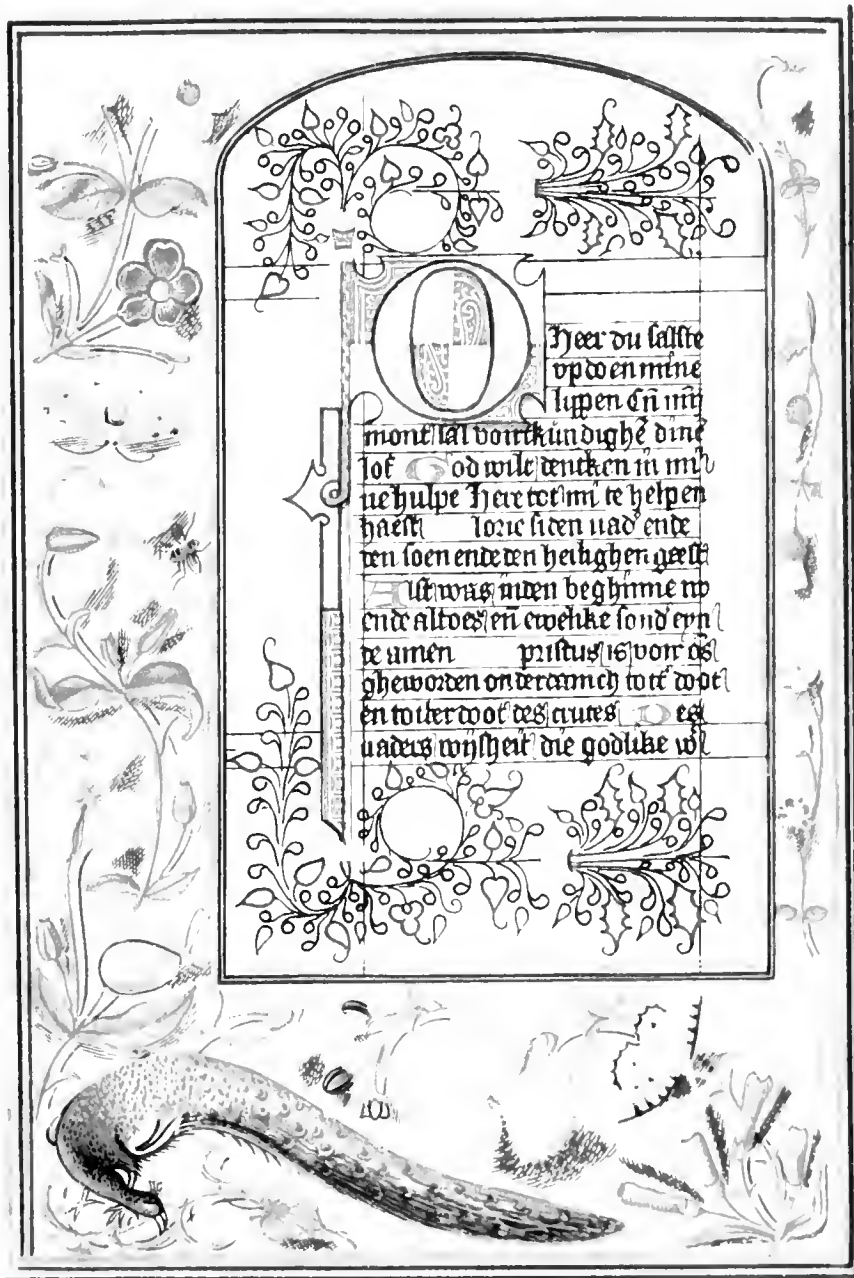 O
Heer du salste
vp doen mine
lippen Eñ mĩ
mont sal voirtkundighẽ dine
lof God wilt dencken in mi
ne hulpe Here tot mi te helpen
haest lorie si den vad' ende
den soen ende den heilighen geest
Alst was inden beghinne nv
ende altoes eñ ewelike sond' eyn
de amen pristus is voir õs
gheworden onderdanich tott doot
en totter doot des cruces Des
vaders wijsheit die godlike w